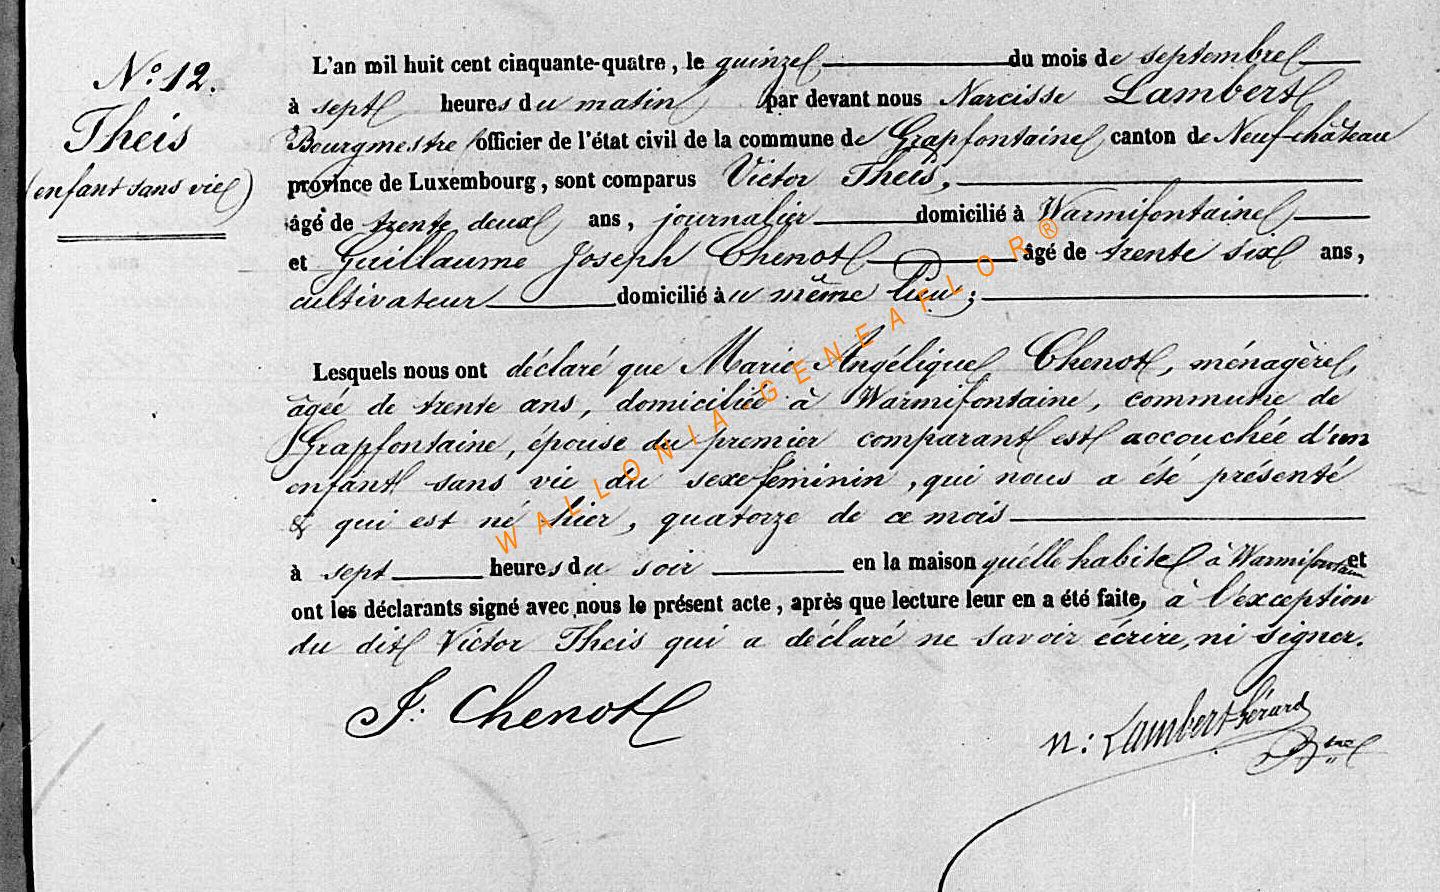 N° 12.
Theis
(enfant sans vie)
L'an mil huit cent cinquante-quatre, le quinze du mois de septembre
à sept heures du matin par devant nous Narcisse Lambert
Bourgmestre officier de l'état civil de la commune de Grapfontaine canton de Neufchâteau
province de Luxembourg, sont comparus Victor Theis,
âgé de trente deux ans, journalier domicilié à Warmifontaine
et Guillaume Joseph Chenot âgé de trente six ans,
cultivateur domicilié au même lieu;
Lesquels nous ont déclaré que Marie Angélique Chenot, ménagère,
âgée de trente ans, domiciliée à Warmifontaine, commune de
Grapfontaine, épouse du premier comparant est accouchée d'un
enfant sans vie du sexe féminin, qui nous a été présenté
& qui est né hier, quatorze de ce mois
à sept heures du soir en la maison qu'elle habite à Warmifontaine et
ont les déclarants signé avec nous le présent acte, après que lecture leur en a été faite, à l'exception
du dit Victor Theis qui a déclaré ne savoir écrire, ni signer.
J. Chenot
N: Lambert-Gérard
Btre
WALLONIA GENEAFLOR®